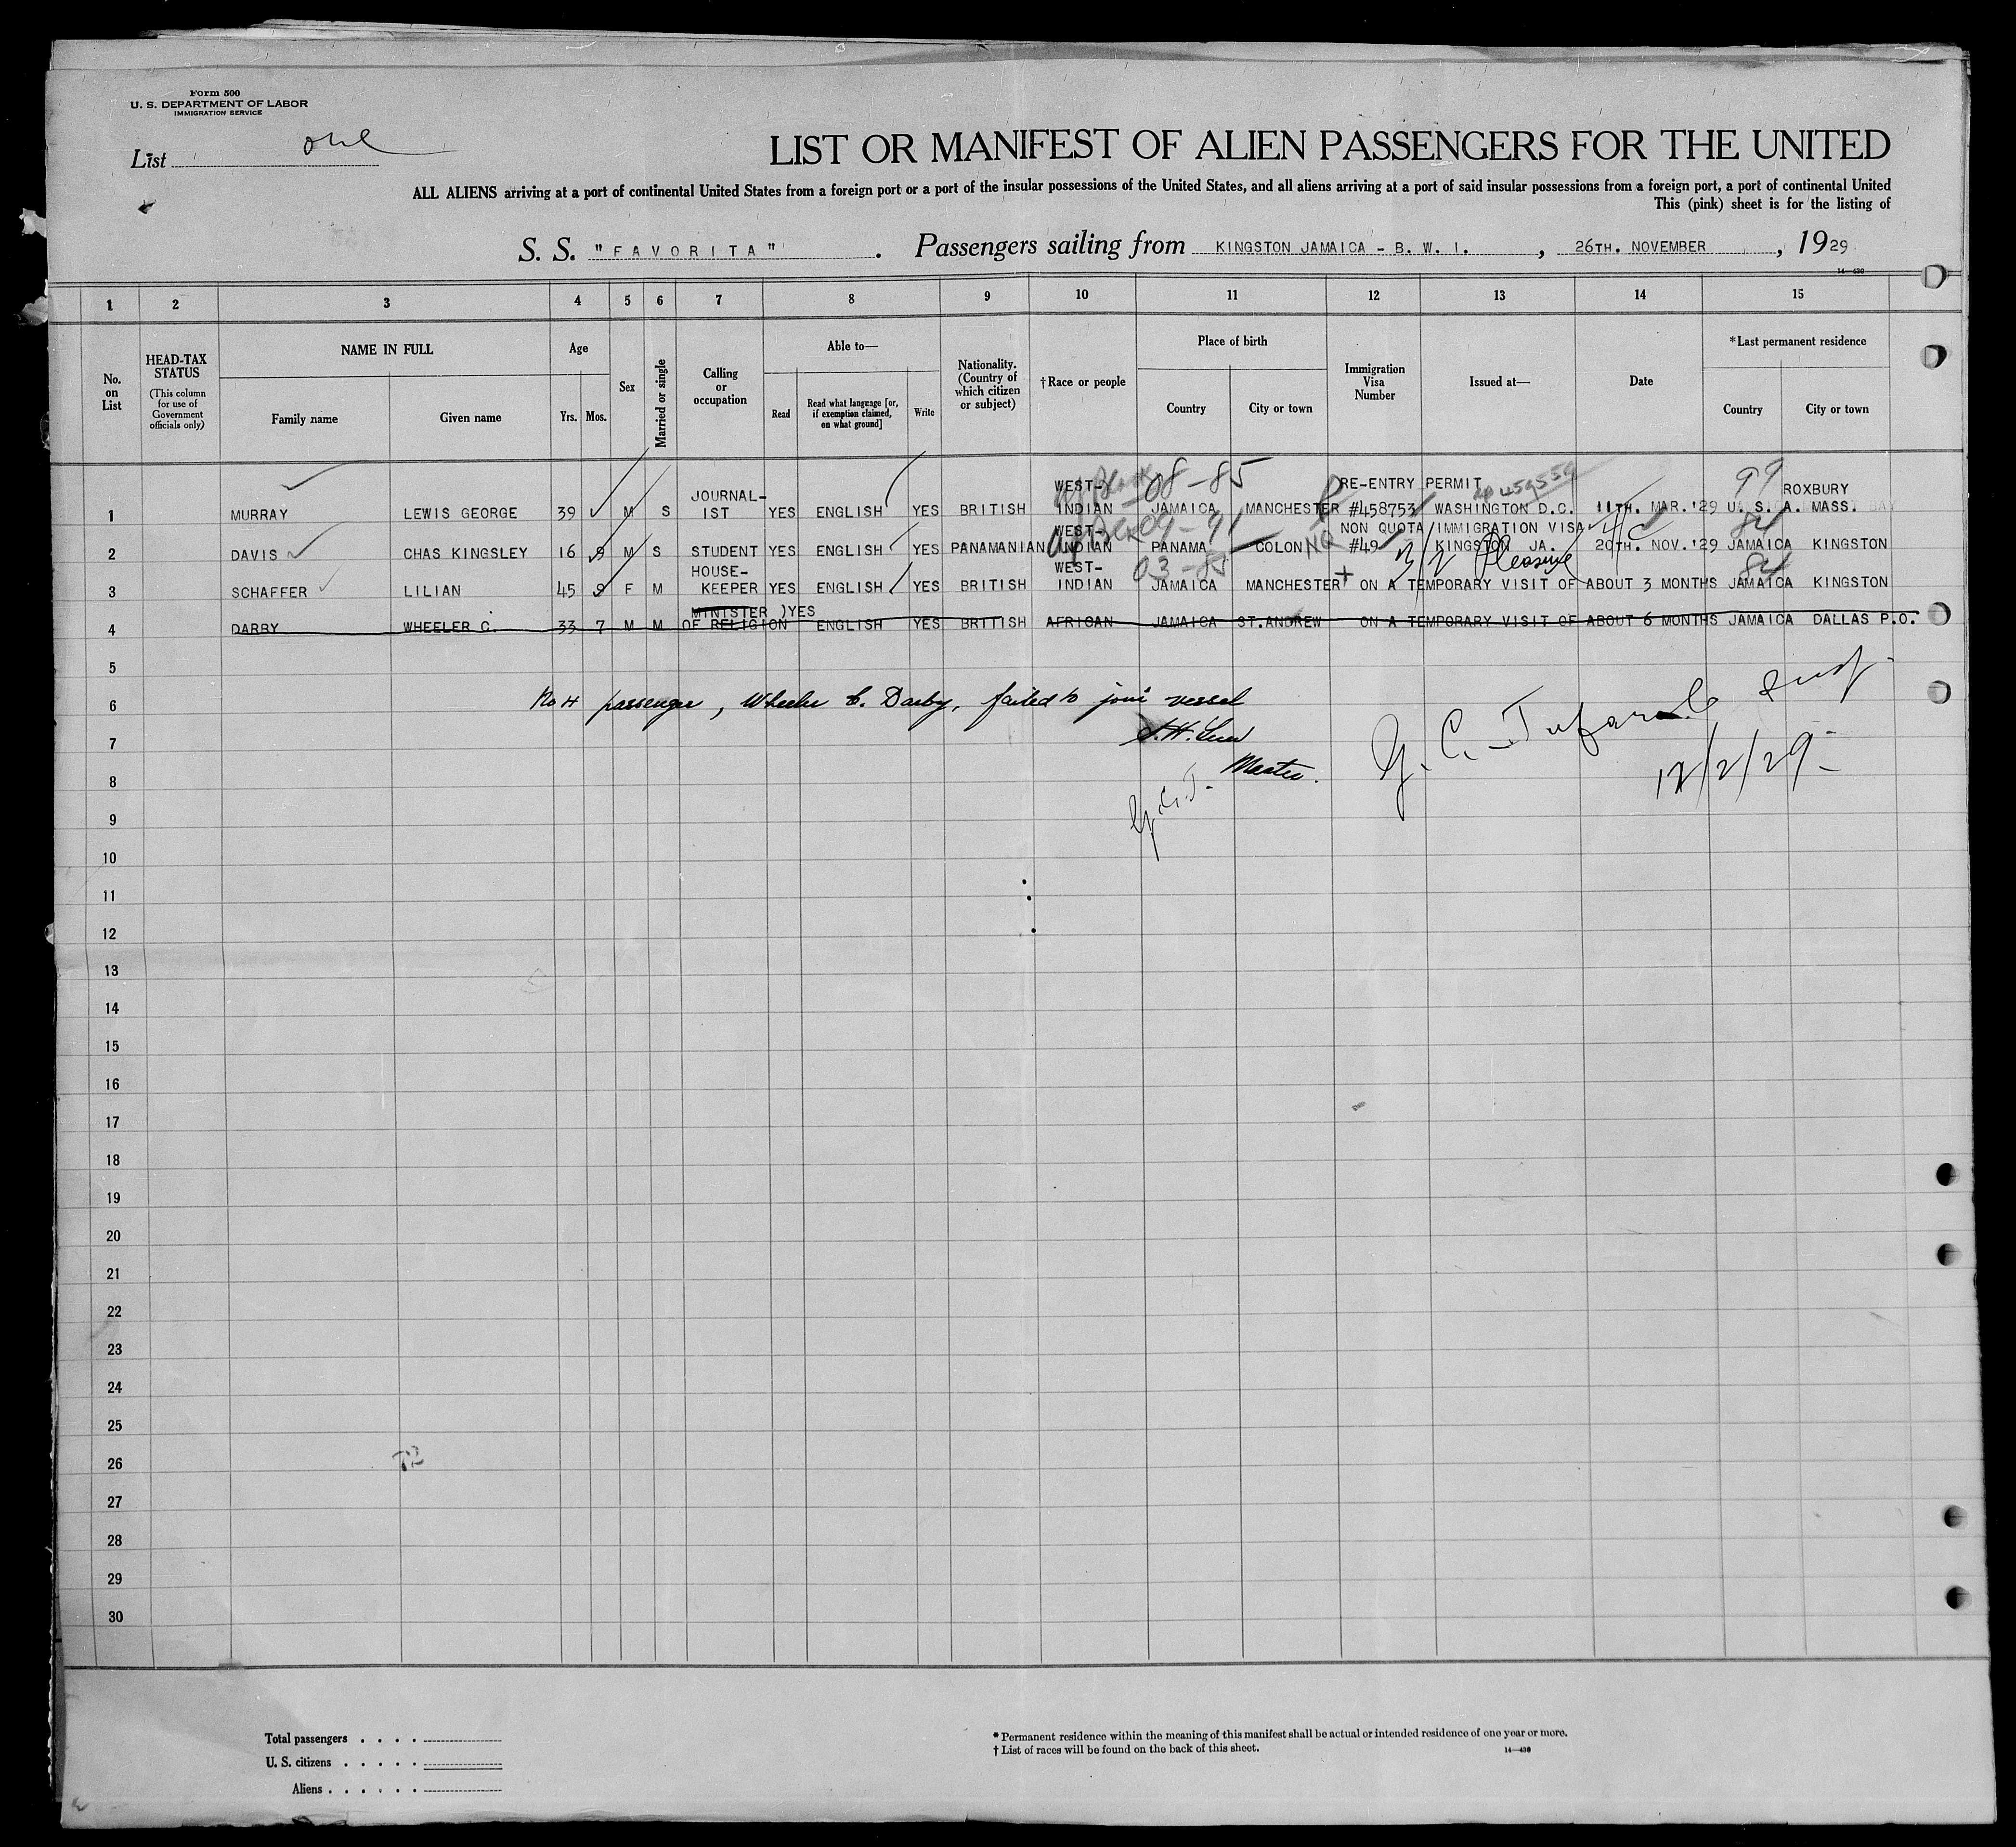 Form 500
U. S. DEPARTMENT OF LABOR
IMMIGRATION SERVICE
List one
LIST OR MANIFEST OF ALIEN PASSENGERS FOR THE UNITED
ALL ALIENS arriving at a port of continental United States from a foreign port or a port of the insular possessions of the United States, and all aliens arriving at a port of said insular possessions from a foreign port, a port of continental United
This (pink) sheet is for the listing of
S. S. "FAVORITA". Passengers sailing from KINGSTON JAMAICA - B. W. I., 26TH. NOVEMBER, 1929
14—430
1 2 3 4 5 6 7 8 9 10 11 12 13 14 15
No. on List
HEAD-TAX STATUS
(This column for use of Government officials only)
NAME IN FULL
Family name
Given name
Age
Yrs. Mos.
Sex
Married or single
Calling or occupation
Able to—
Read
Read what language [or, if exemption claimed, on what ground]
Write
Nationality. (Country of which citizen or subject)
† Race or people
Place of birth
Country
City or town
Immigration Visa Number
Issued at—
Date
*Last permanent residence
Country
City or town
1 MURRAY LEWIS GEORGE 39 M S JOURNAL-IST YES ENGLISH YES BRITISH WEST-INDIAN JAMAICA MANCHESTER RE-ENTRY PERMIT #458753 WASHINGTON D.C. 11TH. MAR.'29 U. S. A. ROXBURY MASS.
08-85 99
2 DAVIS CHAS KINGSLEY 16 9 M S STUDENT YES ENGLISH YES PANAMANIAN WEST-INDIAN PANAMA COLON NON QUOTA IMMIGRATION VISA #49 KINGSTON JA. 20TH. NOV.'29 JAMAICA KINGSTON
NQ 84
3 SCHAFFER LILIAN 45 9 F M HOUSE-KEEPER YES ENGLISH YES BRITISH WEST-INDIAN JAMAICA MANCHESTER ON A TEMPORARY VISIT OF ABOUT 3 MONTHS JAMAICA KINGSTON
03-85 3/2 Pleasure 84
4 DARBY WHEELER C. 33 7 M M MINISTER OF RELIGION )YES ENGLISH YES BRITISH AFRICAN JAMAICA ST.ANDREW ON A TEMPORARY VISIT OF ABOUT 6 MONTHS JAMAICA DALLAS P.O.
5
6 No 4 passenger, Wheeler C. Darby, failed to join vessel
7
8 Master.
G.C.T.
12/2/29
9
10
11
12
13
14
15
16
17
18
19
20
21
22
23
24
25
26
27
28
29
30
Total passengers . . . .
U. S. citizens . . . . .
Aliens . . . . . .
* Permanent residence within the meaning of this manifest shall be actual or intended residence of one year or more.
† List of races will be found on the back of this sheet.
14—430